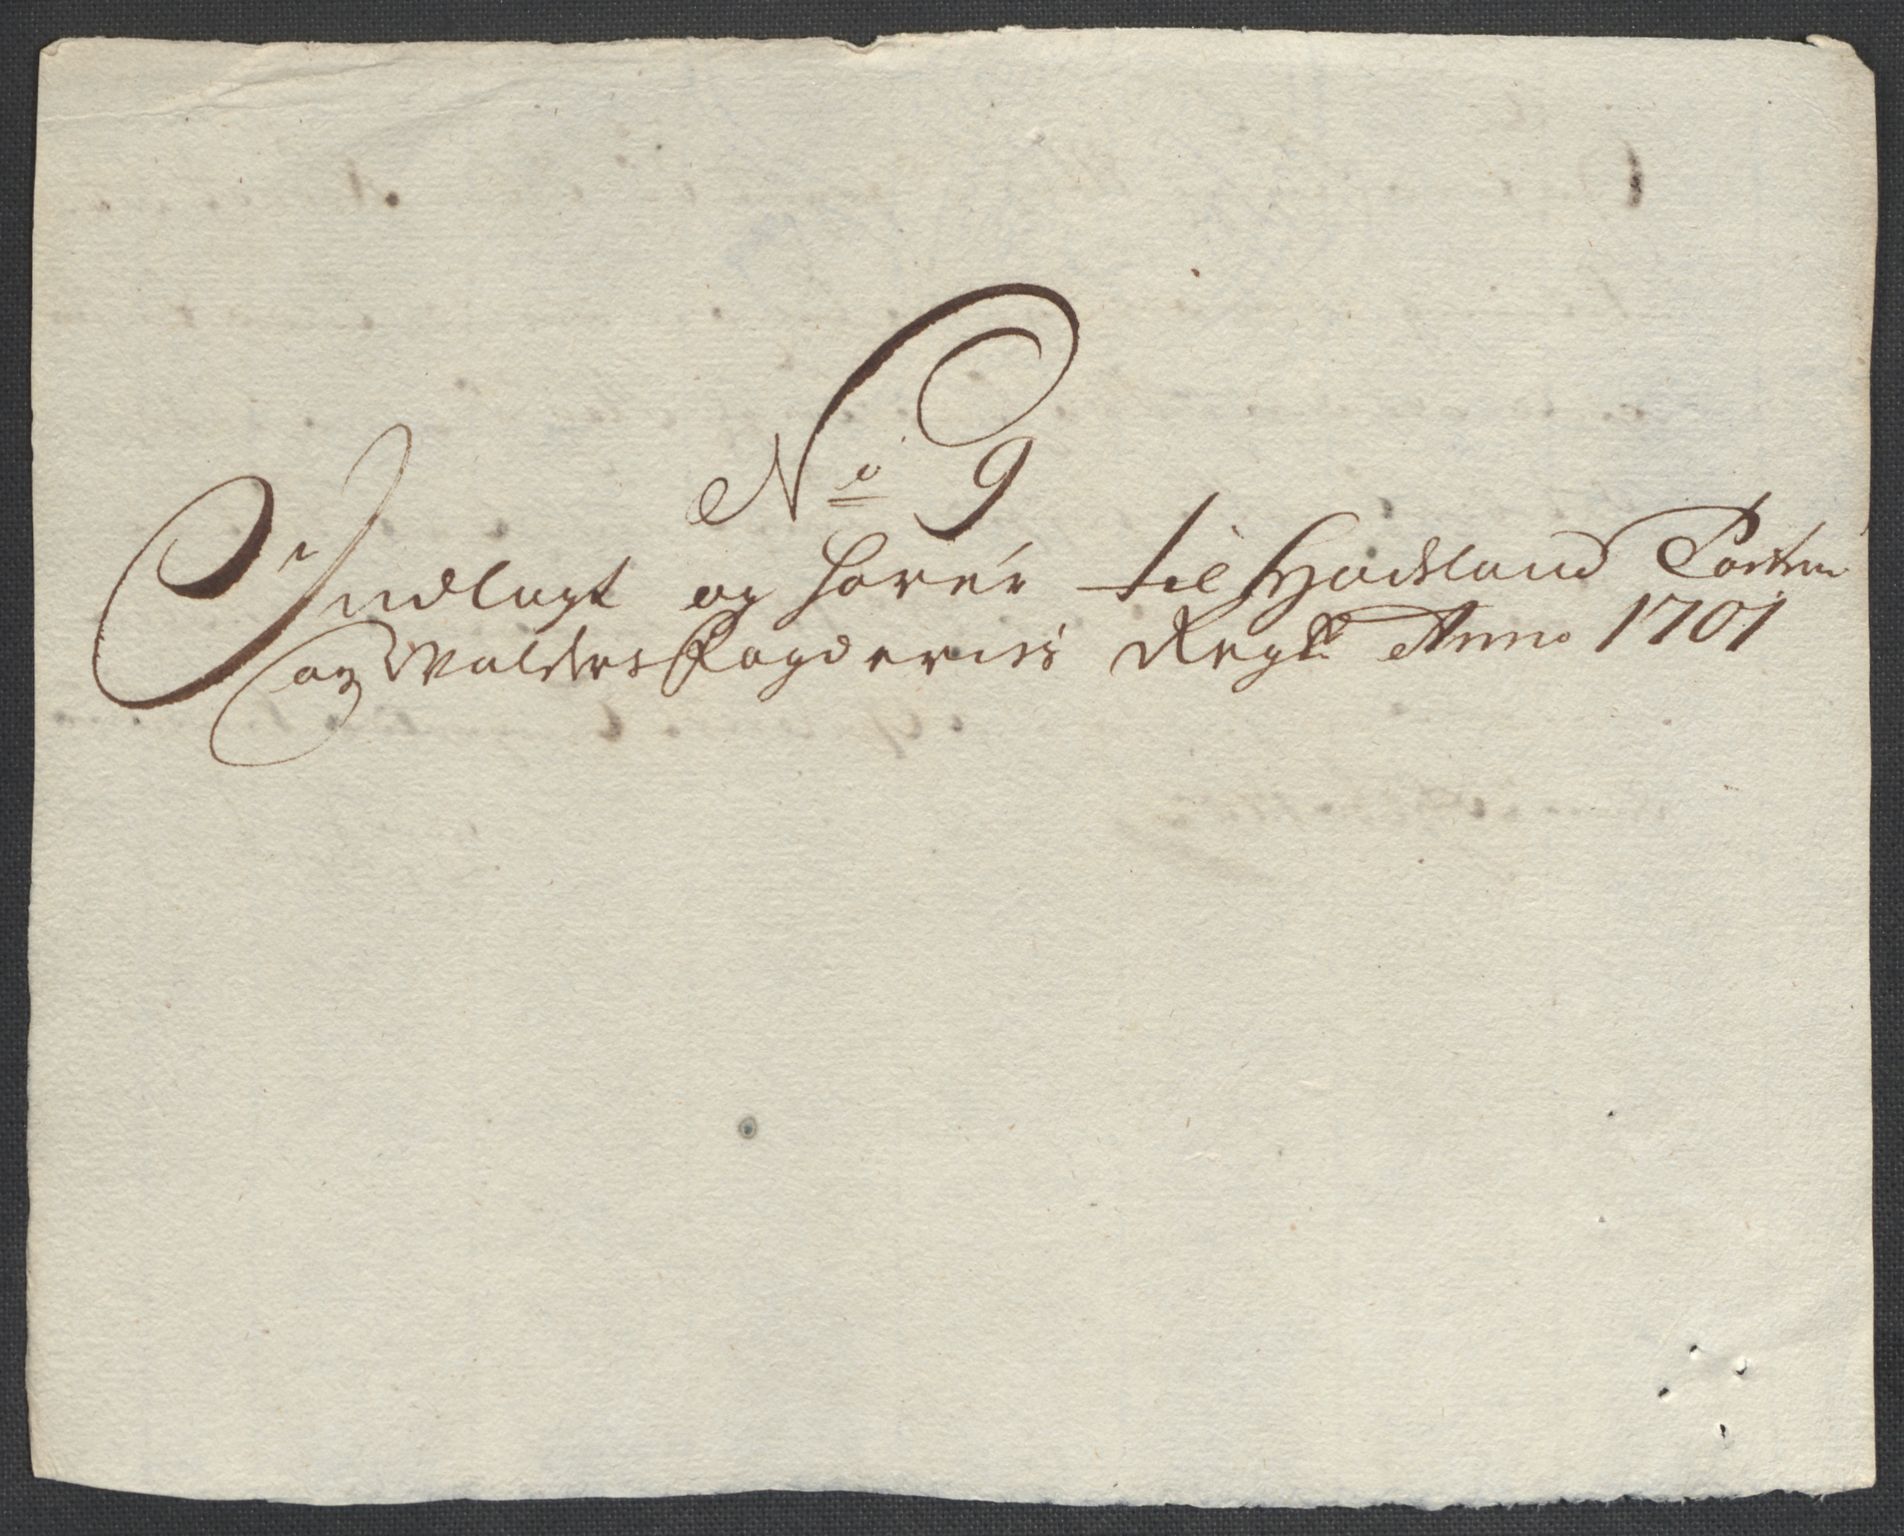 No 9
Indlagt og hører til Hadeland Totten
og Walders Fogderies Regsk: Anno 1701